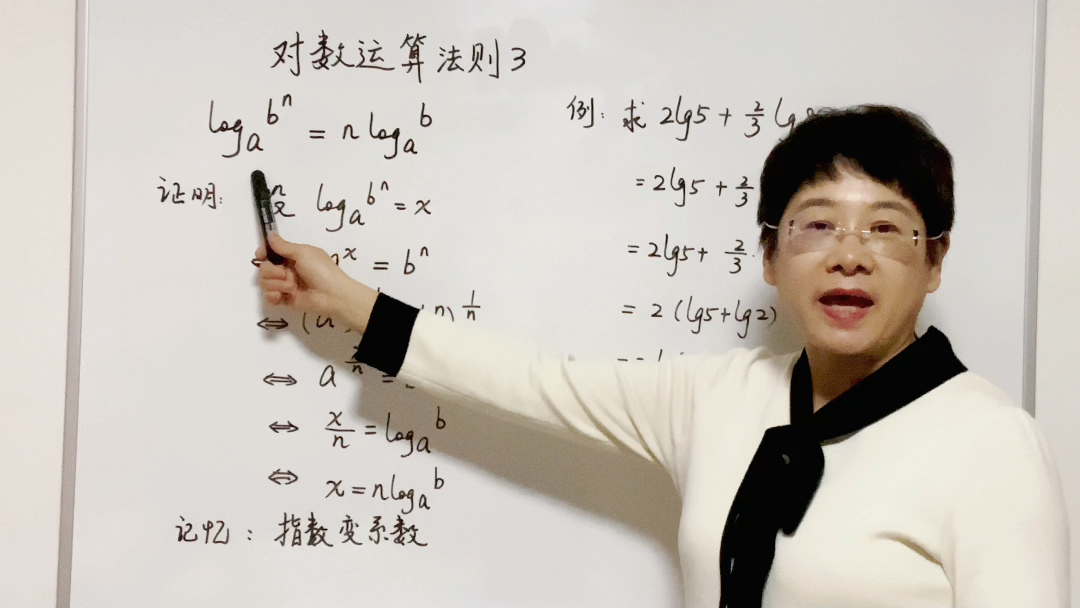 对数运算法则3
logₐbⁿ = n logₐb
证明: 设 logₐbⁿ = x
ˣ = bⁿ
⇔ (a n)^(1/n)
⇔ a^(x/n) =
⇔ x/n = logₐb
⇔ x = n logₐb
记忆: 指数变系数
例: 求 2lg5 + 2/3 lg
= 2lg5 + 2/3
= 2lg5 + 2/3 ·
= 2(lg5+lg2)